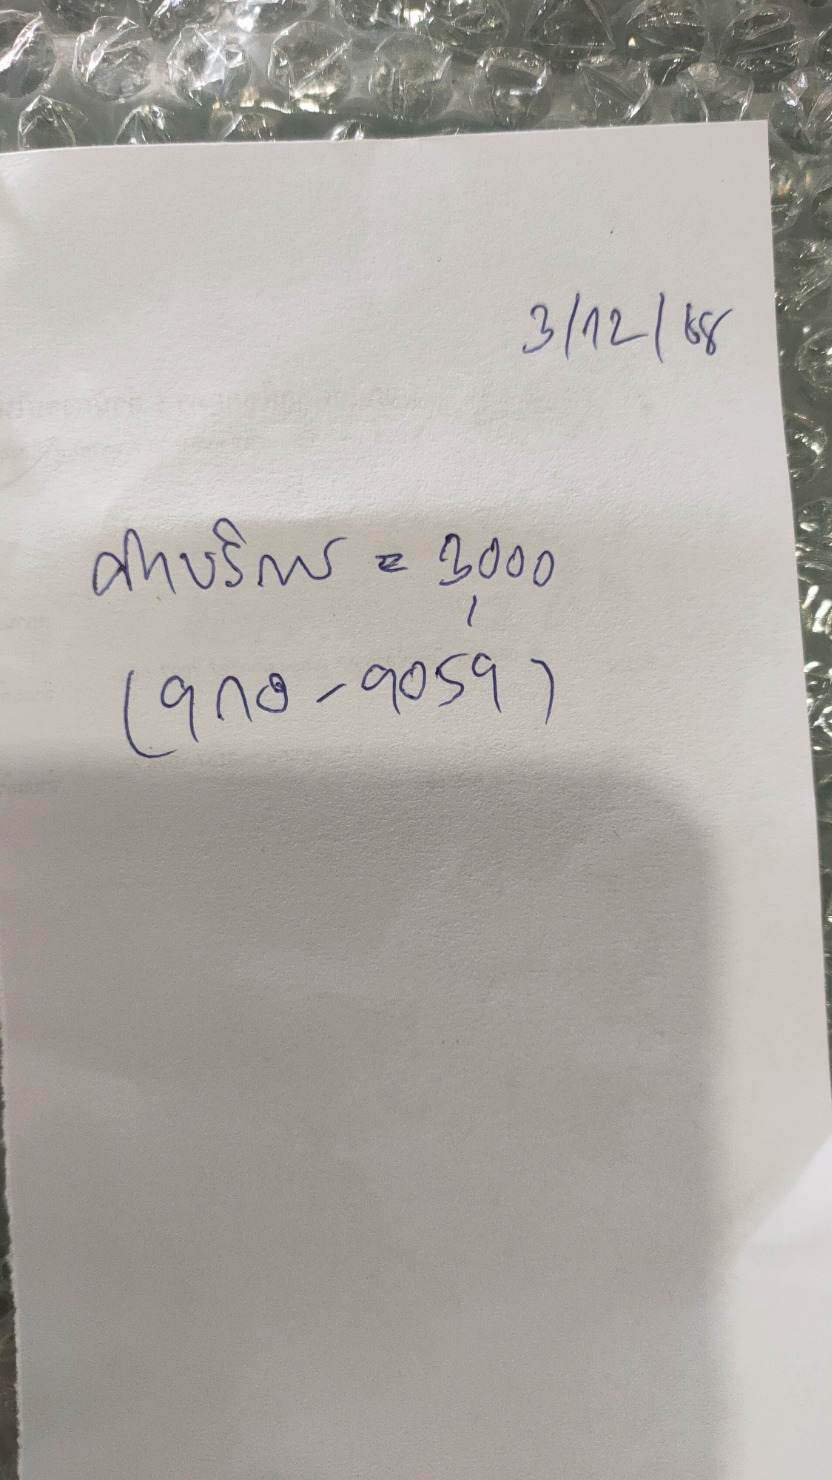 3/12/68
ค่าบริการ = 3,000
(9กอ-9059)